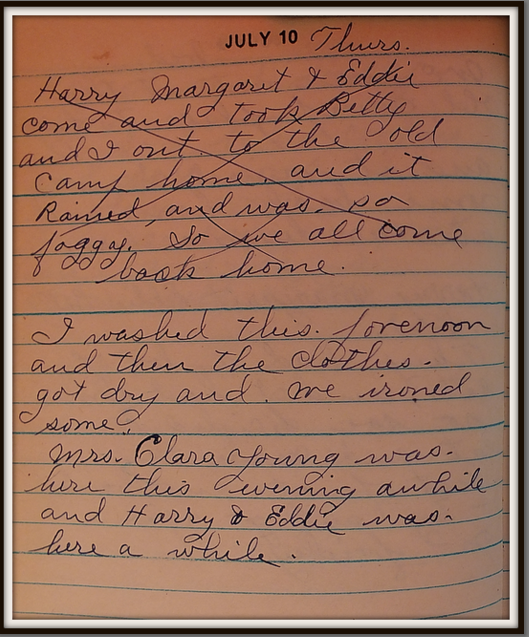 JULY 10 Thurs.
Harry Margaret & Eddie
come and took Betty
and I out to the old
Camp home. and it
Rained and was. so
foggy. So we all come
back home.
I washed this. forenoon
and then the clothes.
got dry and. we ironed
some.
Mrs. Clara Young was.
here this evening awhile
and Harry & Eddie was.
here a while.